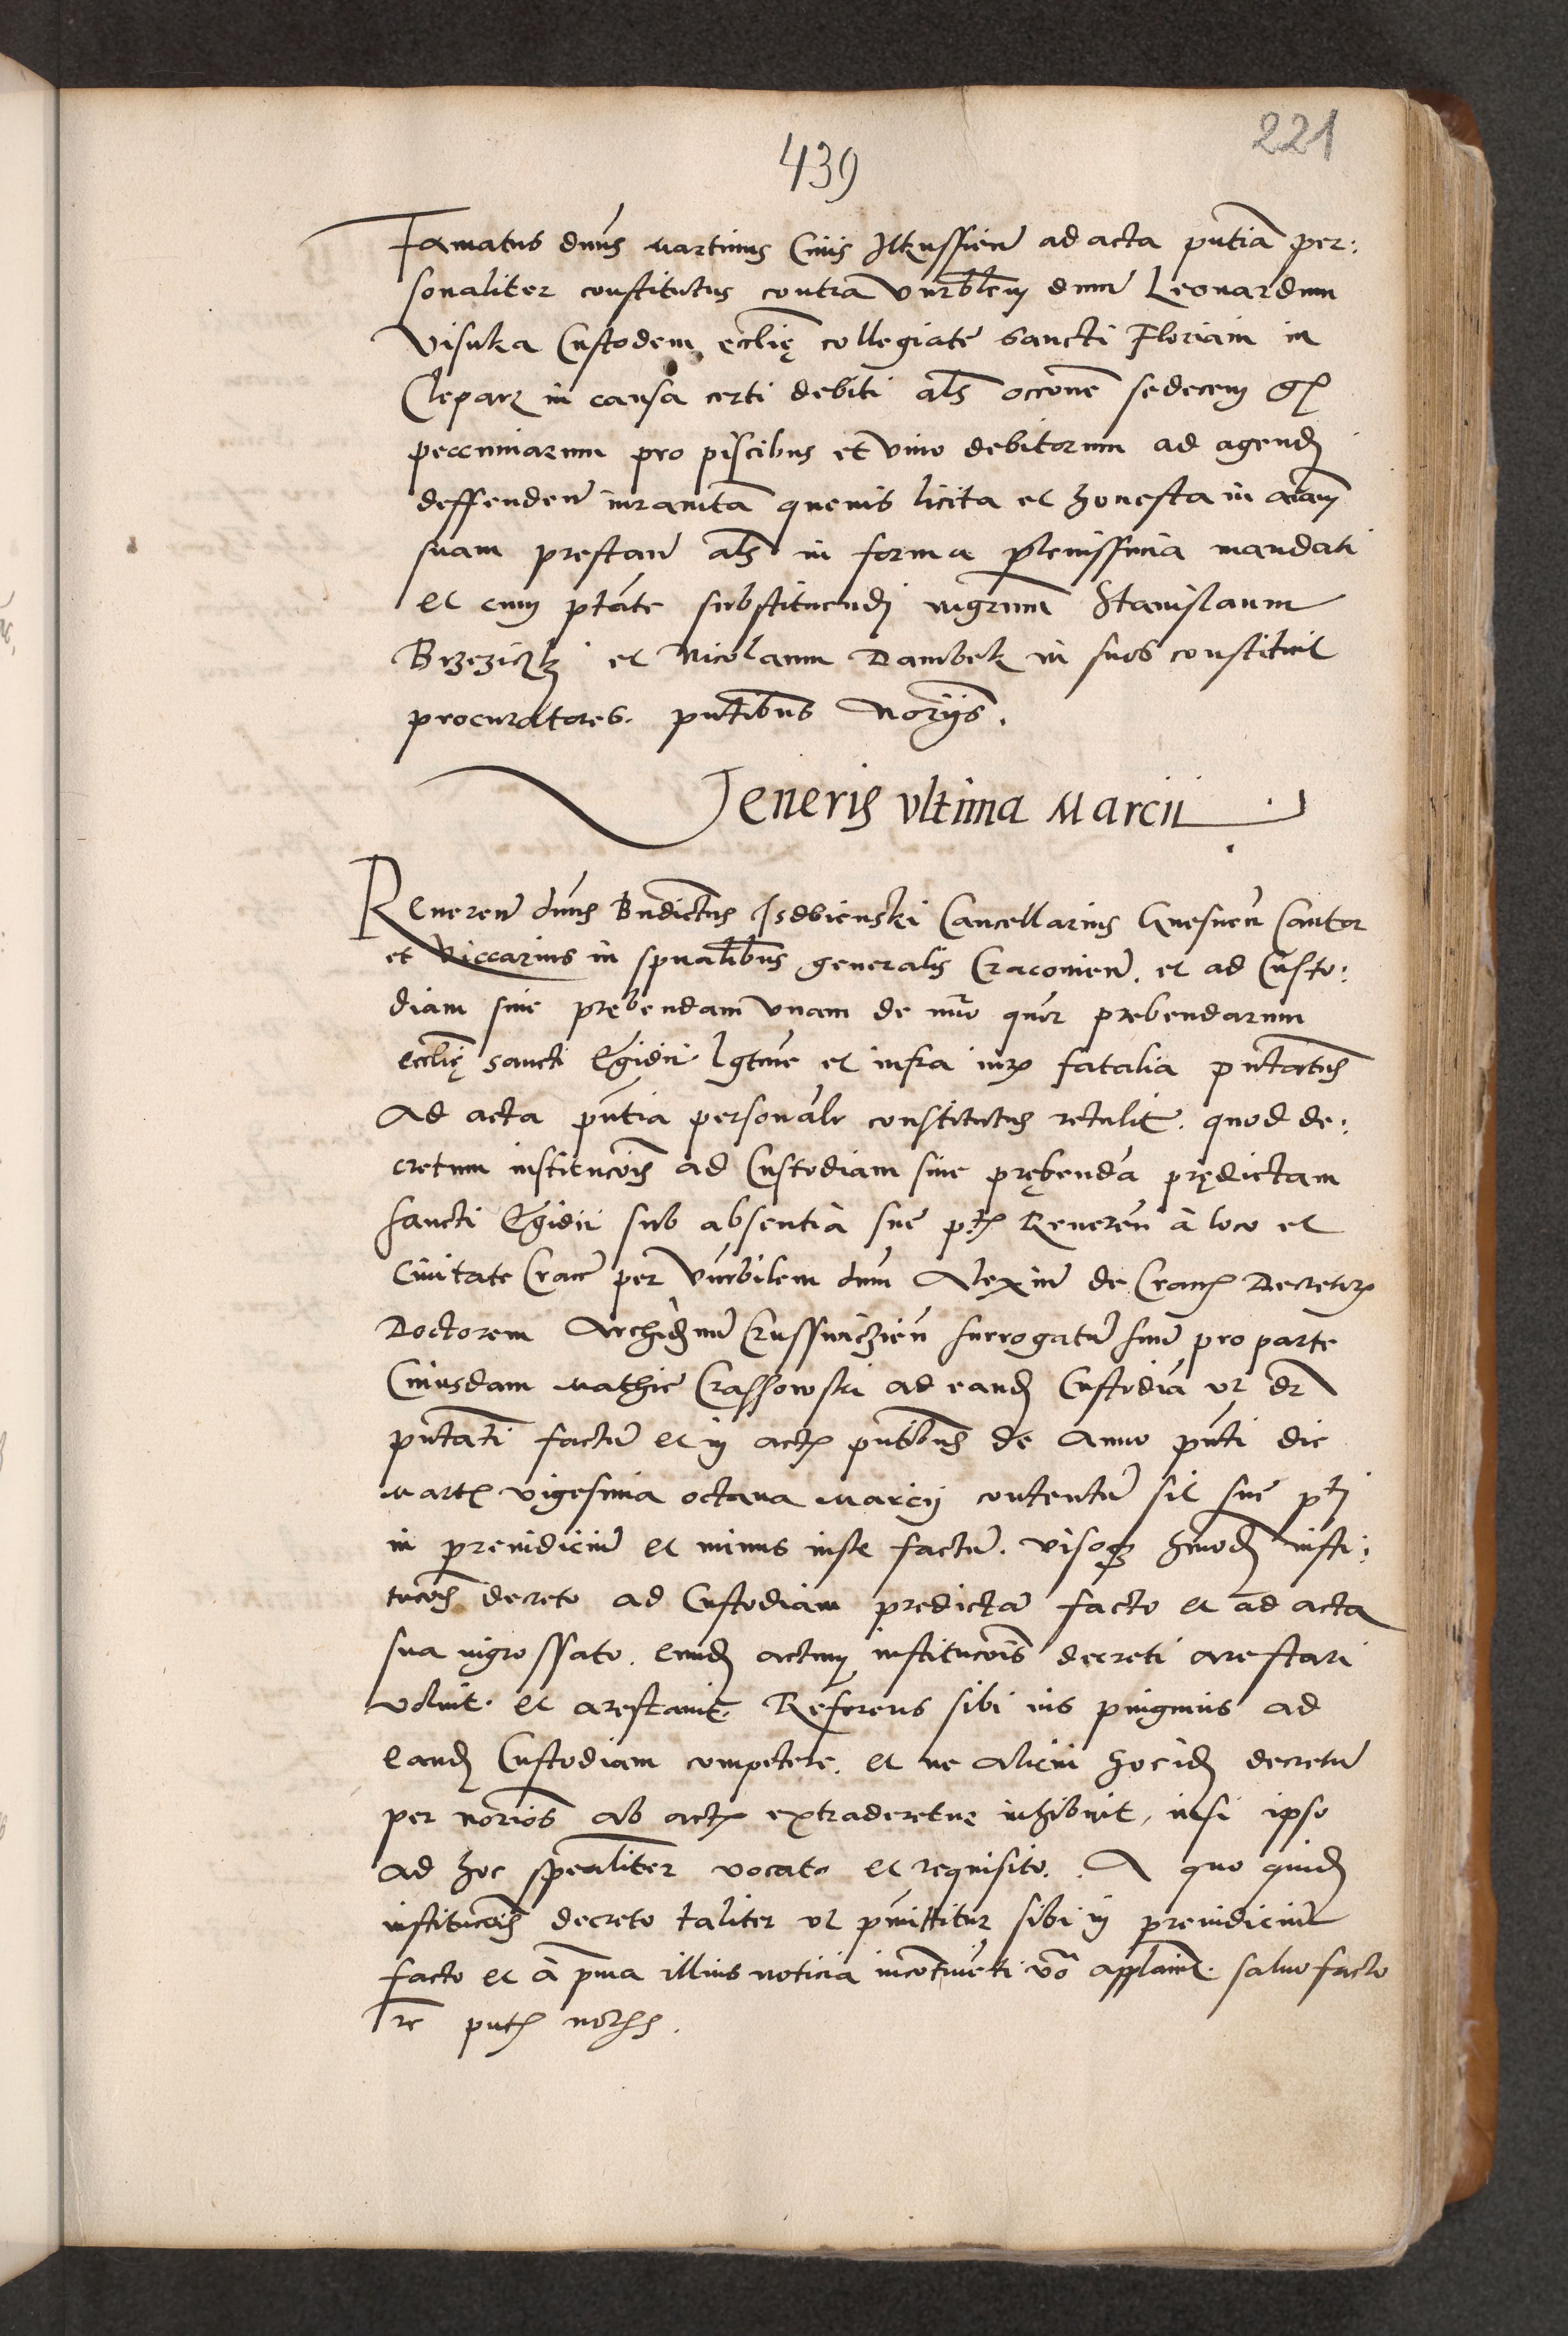 221
439
Famatus dnus Martinus Civis Ilkussien ad acta pntia per:
sonaliter constitutus contra vnrblem dnum Leonardum
Visuka Custodem ecclię collegiate Sancti Floriani in
Clepar in causa certi debiti als occone sedecem gr
peccuniarum pro piscibus et vino debitorum ad agend
deffenden iuranta quevis licita et honesta in aiam
suam prestan als in forma plenissima mandati
et cum ptate substituendi mgrum Stanislaum
Brzeziczki et Nicolaum Dambek in suos constituit
procuratores. pntibus Norijs.
Veneris vltima Marcii
Reveren dnus Bndictus Isdbienski Cancellarius Gnesnen Cantor
et Viccarius in spualibus generalis Cracovien. et ad Custo:
diam sive prębendam vnam de nuo quor prebendarum
ecclię sancti Egidii lgtme et infra iur fatalia pntatus
Ad acta pntia personalr constitutus retulit. quod de:
cretum institucois ad Custodiam sive prębenda prędictam
sancti Egidii sub absentia sue pt Reveren à loco et
Civitate Crace per vnrbilem dnum Alexium de Crac Decretor
Doctorem Archidnum Crussvicien surrogatum suum pro parte
Cuiusdam Mathie Crassowski ad eand Custodia vt dr
pntati factum et in actis pntibus de Anno pnti die
Martis vigesima octava Marcij contentum sit sue pti
in preiudicium et minus iuste factum. visoq hmodi insti:
tucois decreto ad Custodiam predictam facto et ad acta
sua ingrossato. eund actum institucois decreti arestari
voluit. et arestavit. Referens sibi ius pinguius ad
eand Custodiam competere. et ne alicui hocid decretum
per norios ab actis extraderetur inhibuit, nisi ipso
ad hoc spealiter vocato et requisito. A quo quid
institucois decreto taliter vt pmittitur sibi in preiudicium
facto et à pma illius noticia incontinenti vo applavit. salvo facto
re pntis norijs.